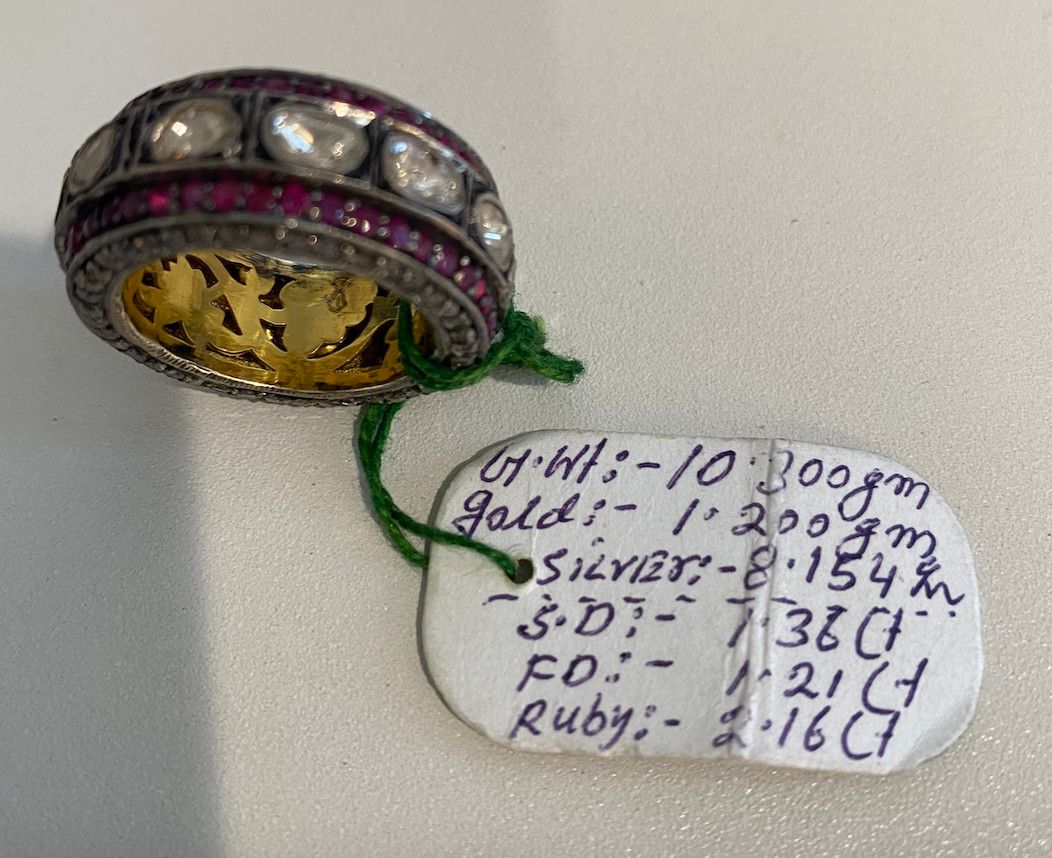 G.Wt:- 10.300gm
gold:- 1.200gm
SilvEr:- 8.154
S.D:- 1.36 Ct
FD:- 1.21 Ct
Ruby:- 2.16 Ct